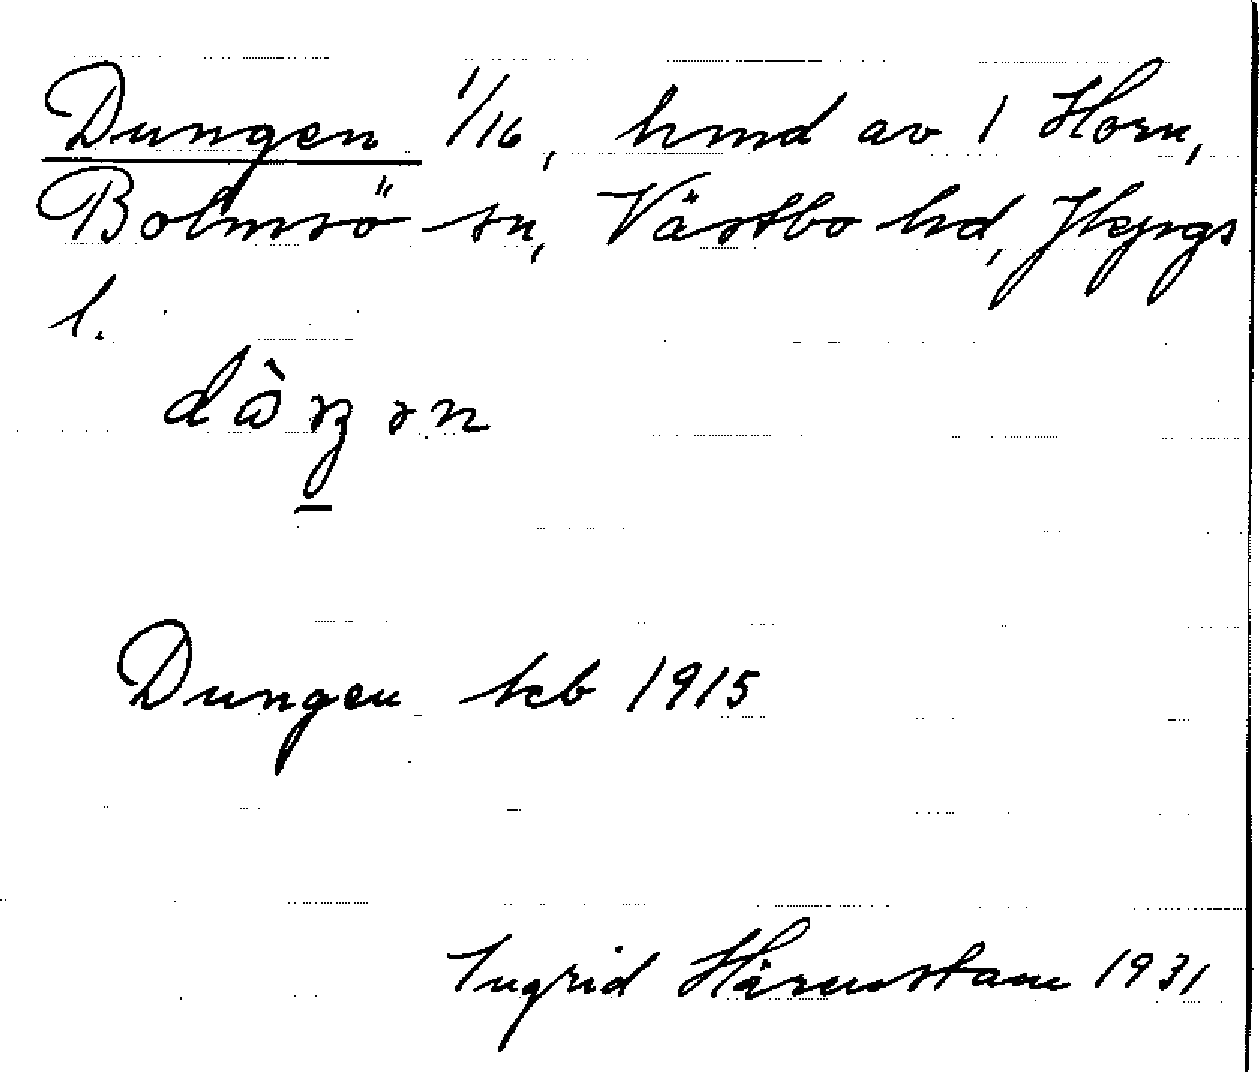 Dungen 1/16, hmd av 1 Horn,
Bolmsö sn, Västbo hd, Jkpgs
l.
Dungen kb 1915
Ingrid Härenstam 1931